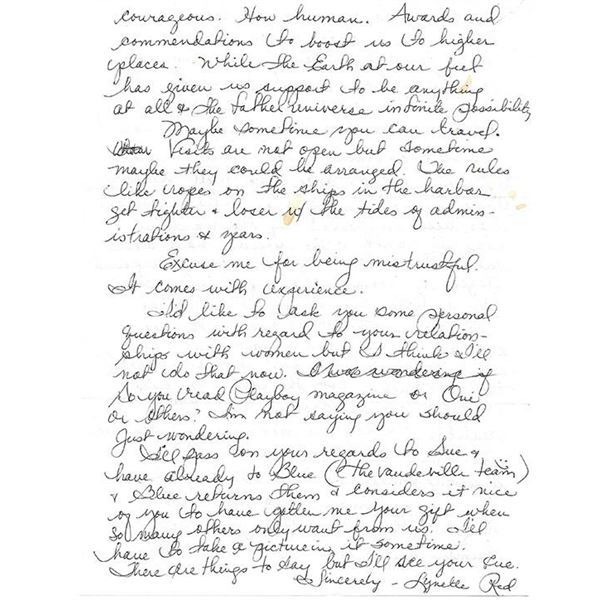 courageous. How human. Awards and
commendations to boost us to higher
places. While the Earth at our feet
has given us support to be anything
at all & the father universe infinite possibility
Maybe sometime you can travel.
Visits are not open but sometime
maybe they could be arranged. The rules
like ropes on the ships in the harbor
get tighter & loser w/ the tides of admin-
istrations & years.
Excuse me for being mistrustful.
It comes with experience.
I'd like to ask you some personal
questions with regard to your relation-
ships with women but I think I'll
not do that now. I was wondering if
Do you read Playboy magazine or Oui
or others? I'm not saying you should
Just wondering.
I'll pass on your regards to Sue &
have already to Blue (the vaudeville team)
& Blue returns them & considers it nice
of you to have gotten me your gift when
so many others only want from us. I'll
have to take a picture in it sometime.
There are things to say but I'll see your
Sincerely - Lynette Red